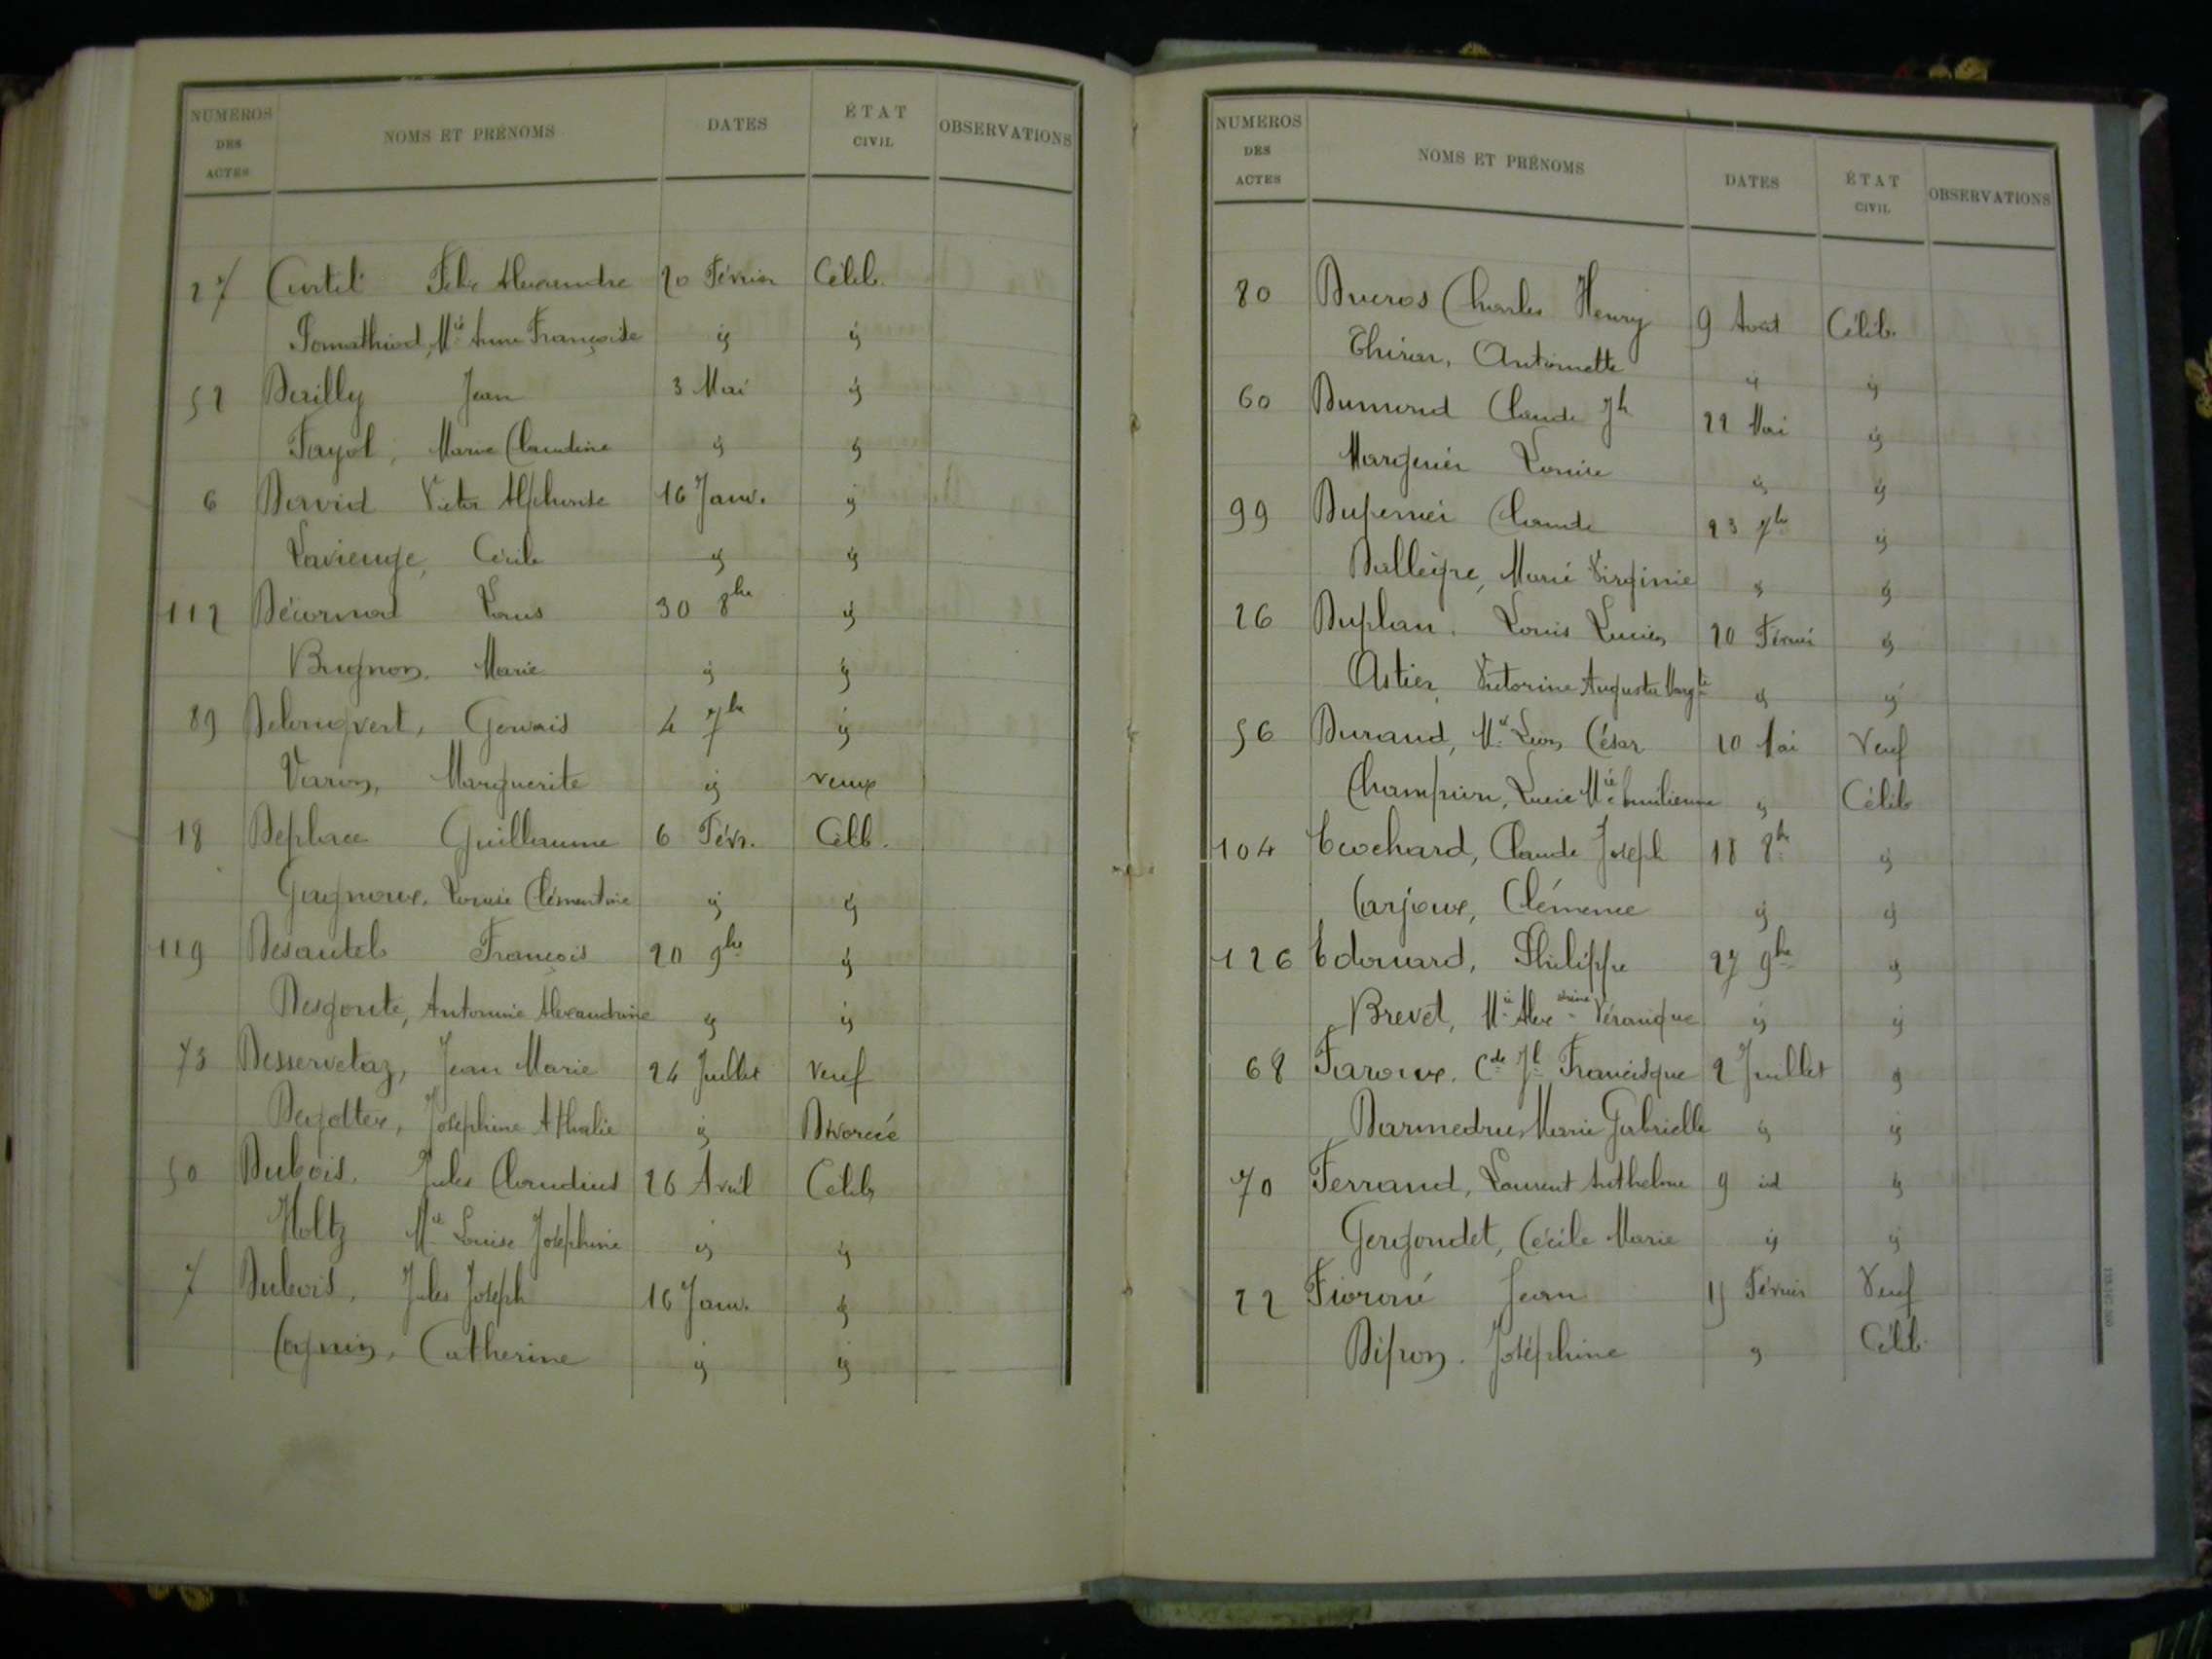 NUMEROS DES ACTES NOMS ET PRÉNOMS DATES ÉTAT CIVIL OBSERVATIONS
27 Curtil Felix Alexandre 20 Février Célib.
Pomathiod, Mie Anne Françoise ij ij
52 Dailly Jean 3 Mai ij
Fayol, Marie Claudine ij ij
6 David Victor Alphonse 16 Janv. ij
Lavieuge, Cécile ij ij
112 Décornod Louis 30 8bre ij
Brugnon, Marie ij ij
89 Delongvert, Gervais 4 7bre ij
Varon, Marguerite ij veuve
18 Deplace Guillaume 6 Févr. Célib.
Gagnoux, Louise Clémentine ij ij
119 Desautel François 20 9bre ij
Desgoute, Antonine Alexandrine ij ij
73 Desservetaz, Jean Marie 24 Juillet Veuf
Deyoltex, Joséphine Athalie ij Divorcée
50 Dubois, Jules Claudius 26 Avril Célib
Holtz Mie Louise Joséphine ij ij
7 Dubois, Jules Joseph 16 Janv. ij
Cagnin, Catherine ij ij
NUMEROS DES ACTES NOMS ET PRÉNOMS DATES ÉTAT CIVIL OBSERVATIONS
80 Ducros Charles Henry 9 Août Célib.
Thiron, Antoinette ij ij
60 Dumond Claude Jh 22 Mai ij
Marguier Louise ij ij
99 Duperrier Claude 23 7bre ij
Dalleigre, Marie Virginie ij ij
26 Duplan, Louis Lucien 20 Février ij
Astier, Victorine Augusta Margte ij ij
56 Durand, Mie Léon César 10 Mai Veuf
Champion, Lucie Mie Emilienne ij Célib
104 Ecochard, Claude Joseph 18 8bre ij
Carjoux, Clémence ij ij
126 Edouard, Philippe 27 9bre ij
Brevet, Mie Alexdrine Véronique ij ij
68 Faroux, Cde Jh Francisque 2 Juillet ij
Darmedru, Marie Gabrielle ij ij
70 Ferrand, Laurent Anthelme 9 id ij
Gergondet, Cécile Marie ij ij
22 Fioroné Jean 15 Février Veuf
Difron, Joséphine ij Célib